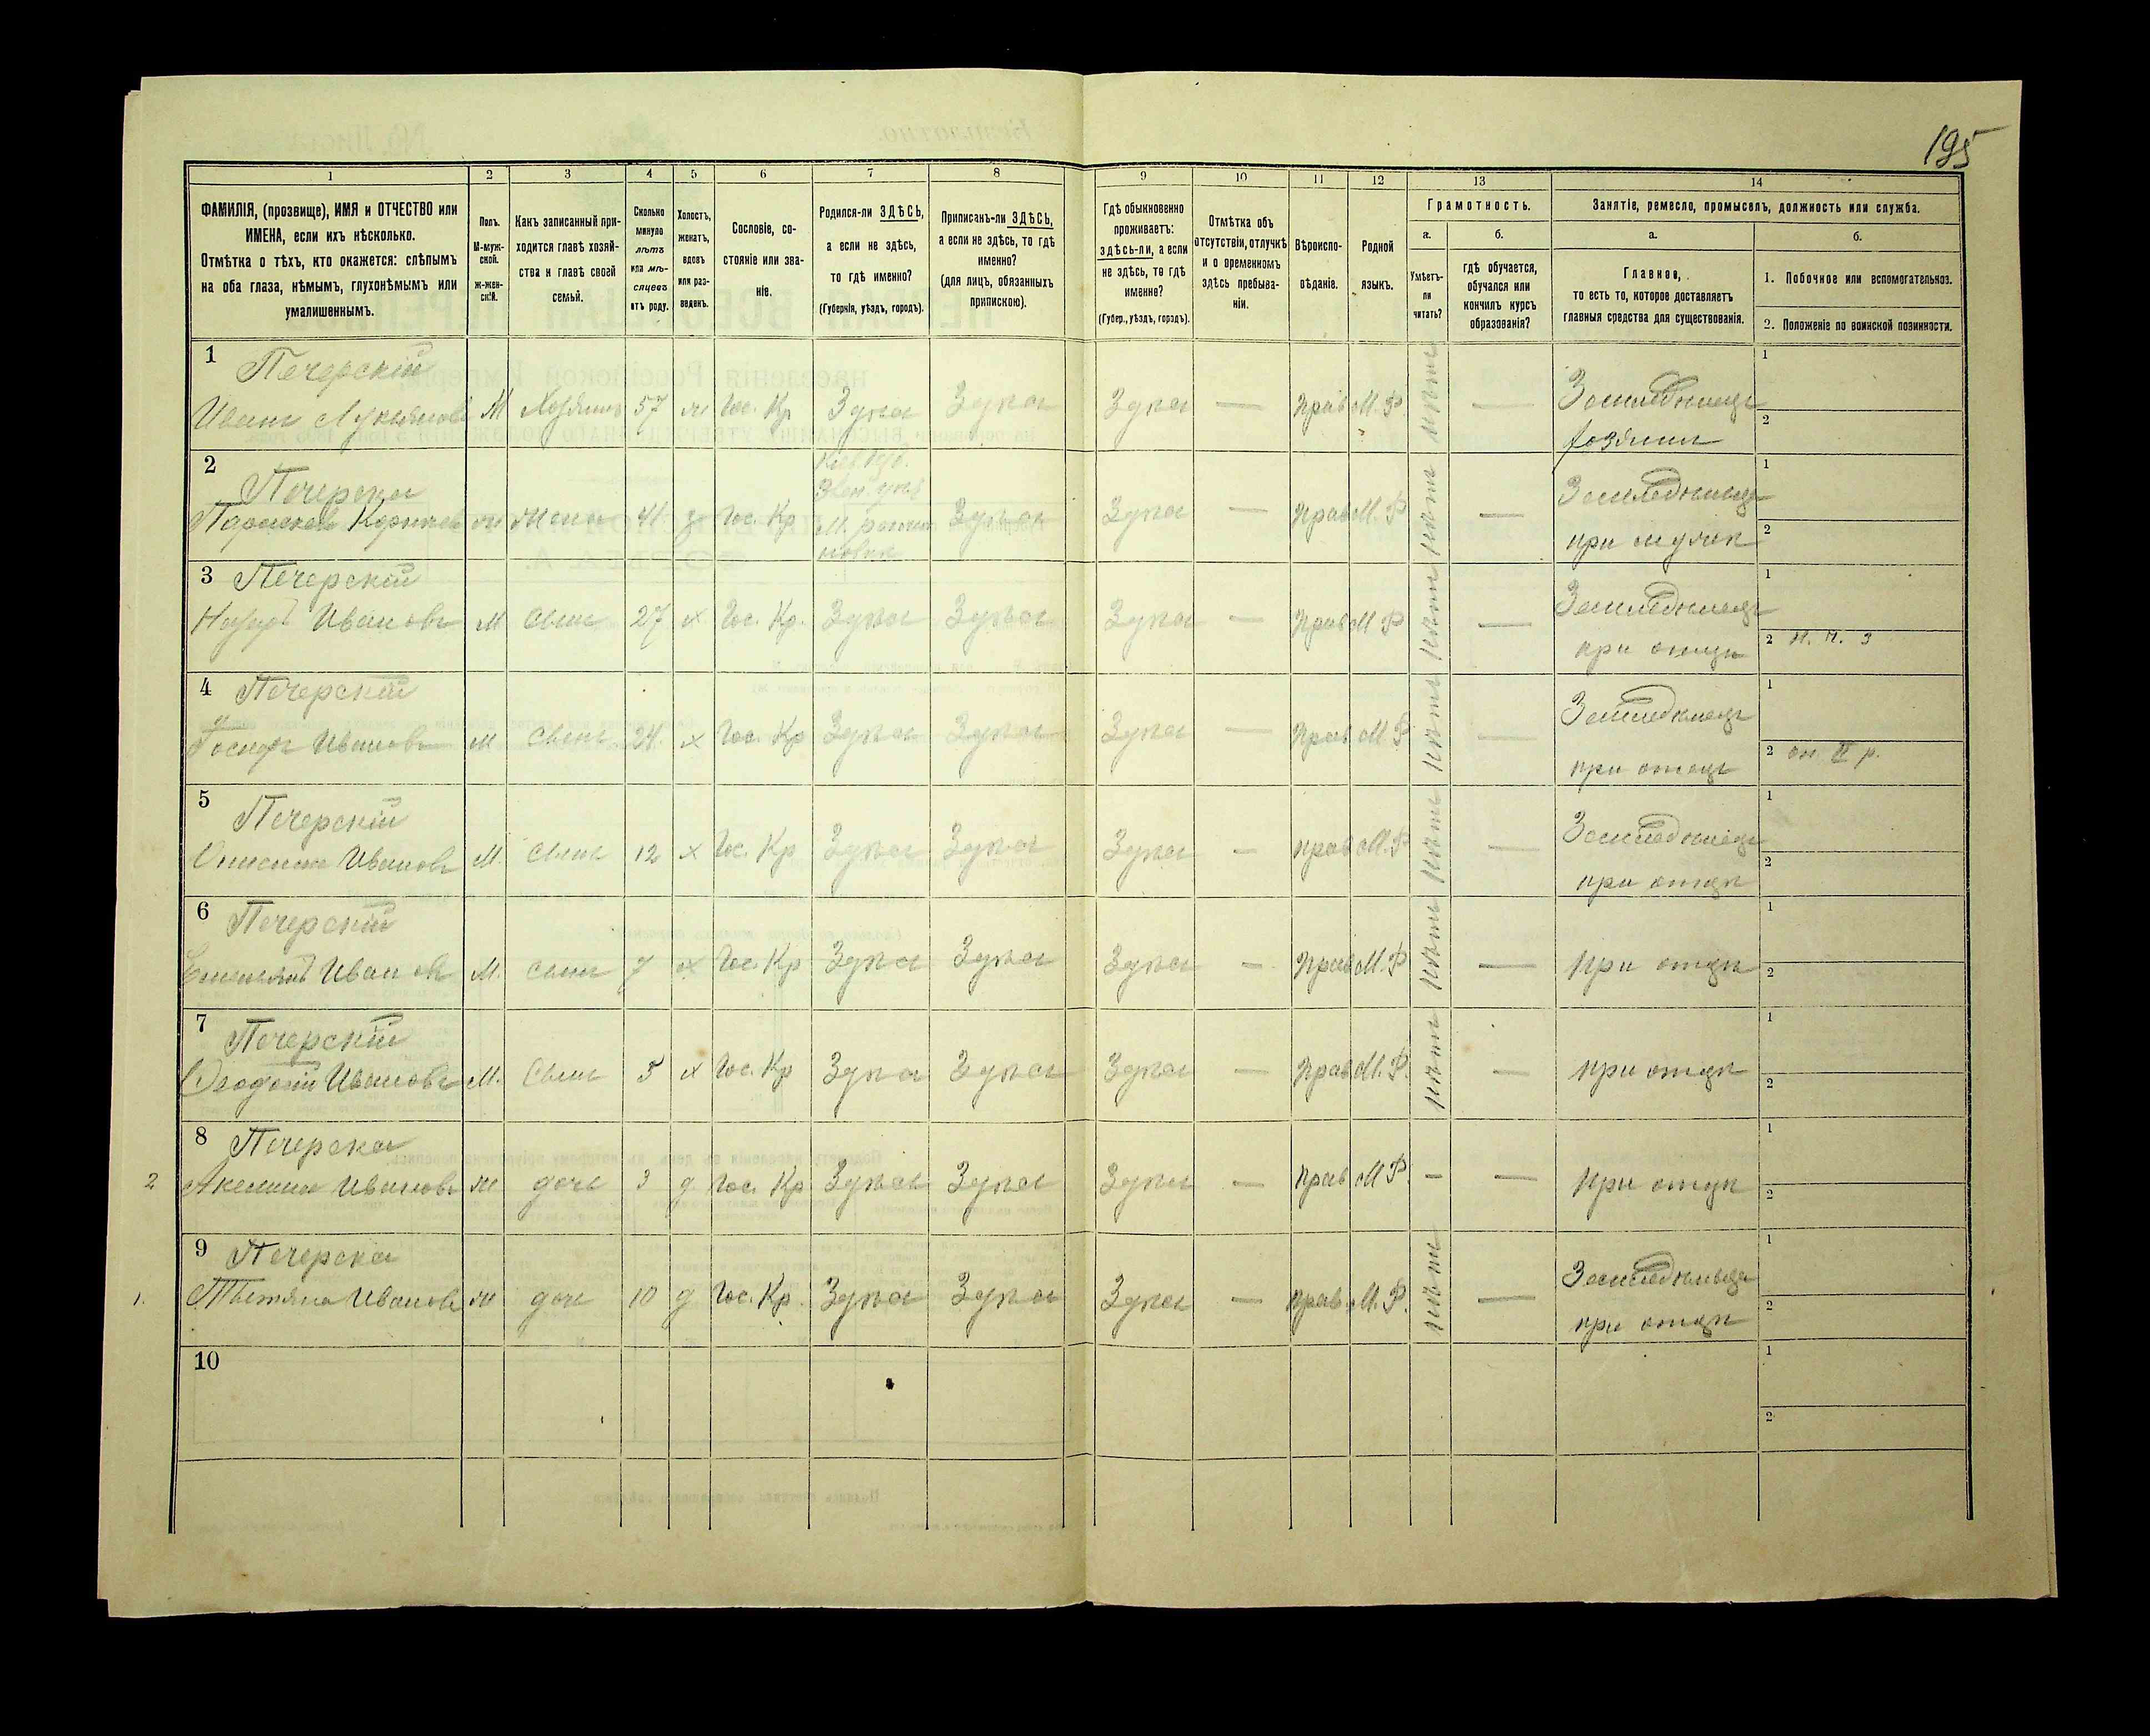 195
1
2
3
4
5
6
7
8
9
10
11
12
13
14
ФАМИЛІЯ, (прозвище), ИМЯ и ОТЧЕСТВО или
ИМЕНА, если ихъ нѣсколько.
Отмѣтка о тѣхъ, кто окажется: слѣпымъ
на оба глаза, нѣмымъ, глухонѣмымъ или
умалишеннымъ.
Полъ.
М-муж-
ской.
Ж-жен-
скій.
Какъ записанный при-
ходится главѣ хозяй-
ства и главѣ своей
семьи.
Сколько
минуло
лѣтъ
или мѣ-
сяцевъ
отъ роду.
Холостъ,
женатъ,
вдовъ
или раз-
веденъ.
Сословіе, со-
стояніе или зва-
ніе.
Родился-ли ЗДѢСЬ,
а если не здѣсь,
то гдѣ именно?
(Губернія, уѣздъ, городъ).
Приписанъ-ли ЗДѢСЬ,
а если не здѣсь, то гдѣ
именно?
(для лицъ, обязанныхъ
припискою).
Гдѣ обыкновенно
проживаетъ:
здѣсь-ли, а если
не здѣсь, то гдѣ
именно?
(Губер., уѣздъ, городъ).
Отмѣтка объ
отсутствіи, отлучкѣ
и о временномъ
здѣсь пребыва-
ніи.
Вѣроиспо-
вѣданіе.
Родной
языкъ.
Грамотность.
а.
Умѣетъ-
ли
читать?
б.
гдѣ обучается,
обучался или
кончилъ курсъ
образованія?
Занятіе, ремесло, промыселъ, должность или служба.
а.
Главное,
то есть то, которое доставляетъ
главныя средства для существованія.
б.
1. Побочное или вспомогательное.
2. Положеніе по воинской повинности.
1
Печерскій
Иванъ Лукьяновъ М Хозяинъ 57 ж Гос. Кр Здѣсь Здѣсь Здѣсь — Прав М. Р. нѣтъ — Земледѣлецъ
хозяинъ
1
2
2
Печерска
Жена 41 з Гос. Кр Здѣсь Здѣсь — Прав М. Р нѣтъ —
при мужѣ
1
2
3
Печерскій
Ивановъ М Сынъ 27 х Гос. Кр. Здѣсь Здѣсь Здѣсь — Прав М Р нѣтъ — Земледѣлецъ
при отцѣ
1
2
4
Печерскій
Іосифъ Ивановъ М Сынъ 24 х Гос. Кр Здѣсь Здѣсь Здѣсь — Прав М Р нѣтъ — Земледѣлецъ
при отцѣ
1
2 II р.
5
Печерскій
Ивановъ М. Сынъ 12 х Гос. Кр Здѣсь Здѣсь Здѣсь — Прав М. Р нѣтъ — Земледѣлецъ
при отцѣ
1
2
6
Печерскій
Ивановъ М. Сынъ 7 х Гос. Кр Здѣсь Здѣсь Здѣсь — Прав М. Р нѣтъ — при отцѣ
1
2
7
Печерскій
Феодосій Ивановъ М. Сынъ 5 х Гос. Кр Здѣсь Здѣсь Здѣсь — Прав М. Р. нѣтъ — при отцѣ
1
2
8
Печерска
2 Ивановъ ж дочь 3 д Гос. Кр Здѣсь Здѣсь Здѣсь — Прав М Р. - — при отцѣ
1
2
9
Печерска
1. Ивановъ ж дочь 10 д Гос. Кр. Здѣсь Здѣсь Здѣсь — Прав. М. Р. нѣтъ —
при отцѣ
1
2
10
1
2